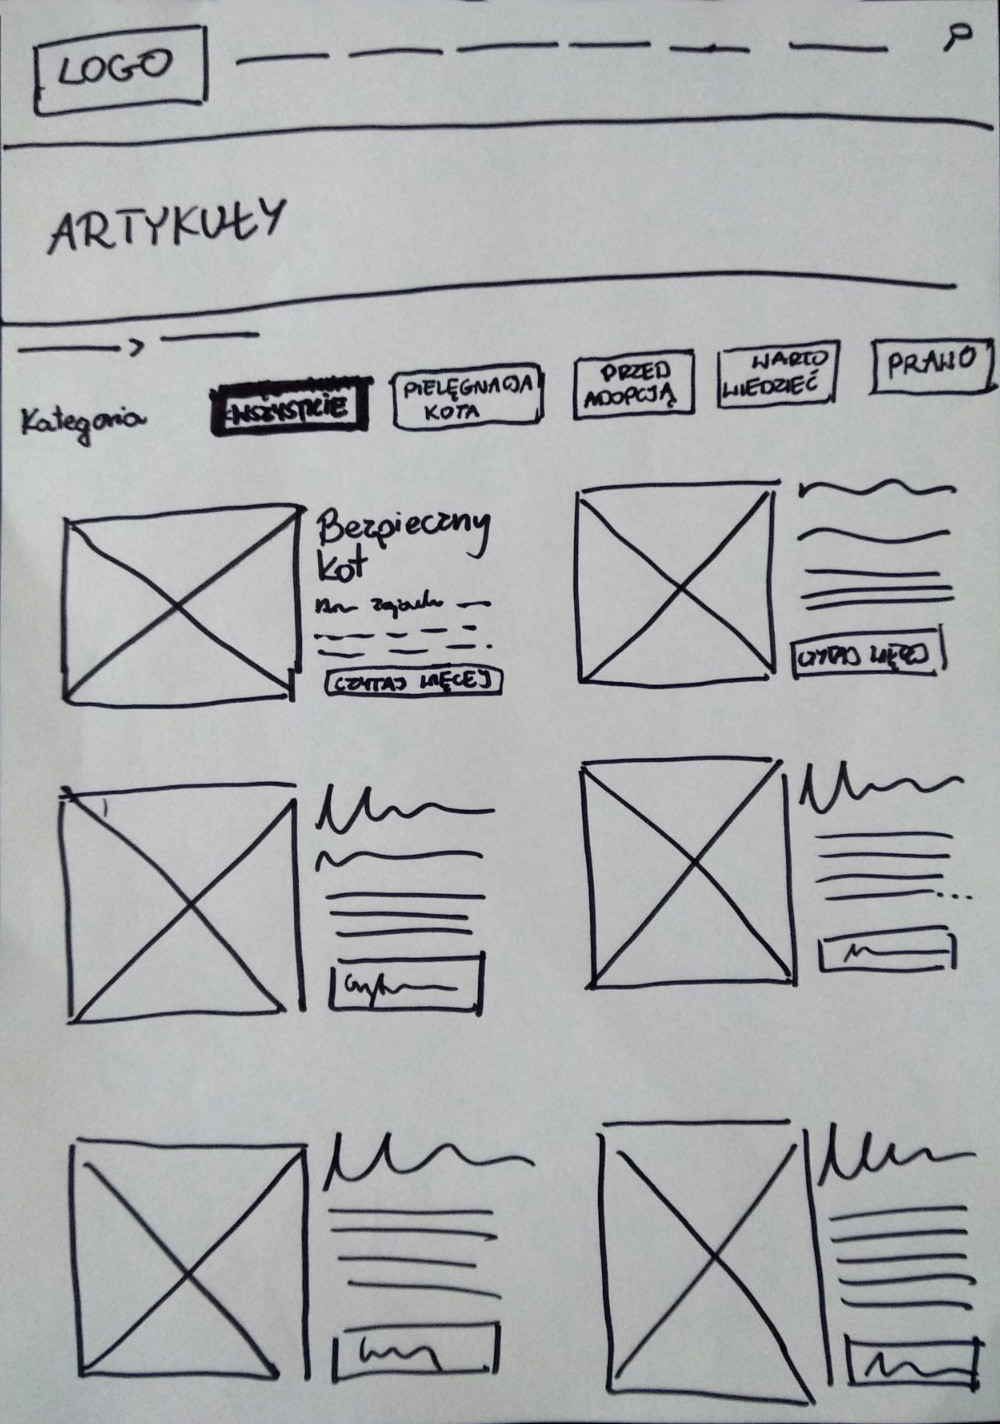 LOGO
ARTYKUŁY
>
Kategoria
WSZYSTKIE
PIELĘGNACJA
KOTA
PRZED
ADOPCJĄ
WARTO
WIEDZIEĆ
PRAWO
Bezpieczny
kot
CZYTAJ WIĘCEJ
CZYTAJ WIĘCEJ